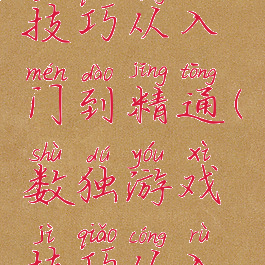 技巧从入
mén dào jīng tōng
门到精通(
shù dú yóu xì
数独游戏
jì qiǎo cóng rù
技巧从入